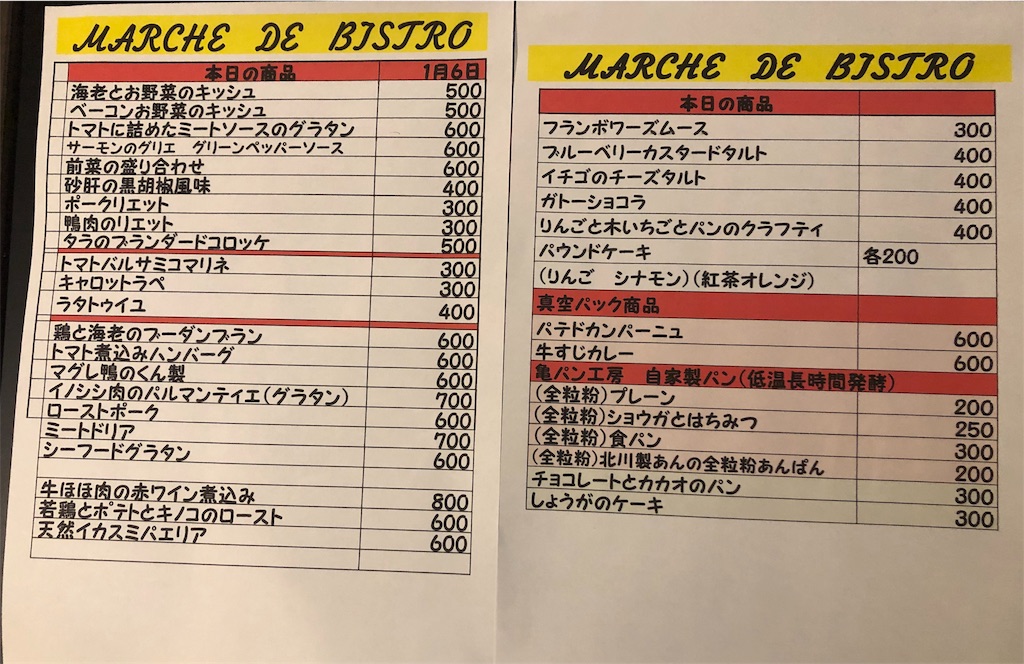 MARCHE DE BISTRO
本日の商品 1月6日
海老とお野菜のキッシュ 500
ベーコンお野菜のキッシュ 500
トマトに詰めたミートソースのグラタン 600
サーモンのグリエ グリーンペッパーソース 600
前菜の盛り合わせ 600
砂肝の黒胡椒風味 400
ポークリエット 300
鴨肉のリエット 300
タラのブランダードコロッケ 500
トマトバルサミコマリネ 300
キャロットラペ 300
ラタトゥイユ 400
鶏と海老のブーダンブラン 600
トマト煮込みハンバーグ 600
マグレ鴨のくん製 600
イノシシ肉のパルマンティエ(グラタン) 700
ローストポーク 600
ミートドリア 700
シーフードグラタン 600
牛ほほ肉の赤ワイン煮込み 800
若鶏とポテトとキノコのロースト 600
天然イカスミパエリア 600
MARCHE DE BISTRO
本日の商品
フランボワーズムース 300
ブルーベリーカスタードタルト 400
イチゴのチーズタルト 400
ガトーショコラ 400
りんごと木いちごとパンのクラフティ 400
パウンドケーキ 各200
(りんご シナモン)(紅茶オレンジ)
真空パック商品
パテドカンパーニュ 600
牛すじカレー 600
亀パン工房 自家製パン(低温長時間発酵)
(全粒粉)プレーン 200
(全粒粉)ショウガとはちみつ 250
(全粒粉)食パン 300
(全粒粉)北川製あんの全粒粉あんぱん 200
チョコレートとカカオのパン 300
しょうがのケーキ 300